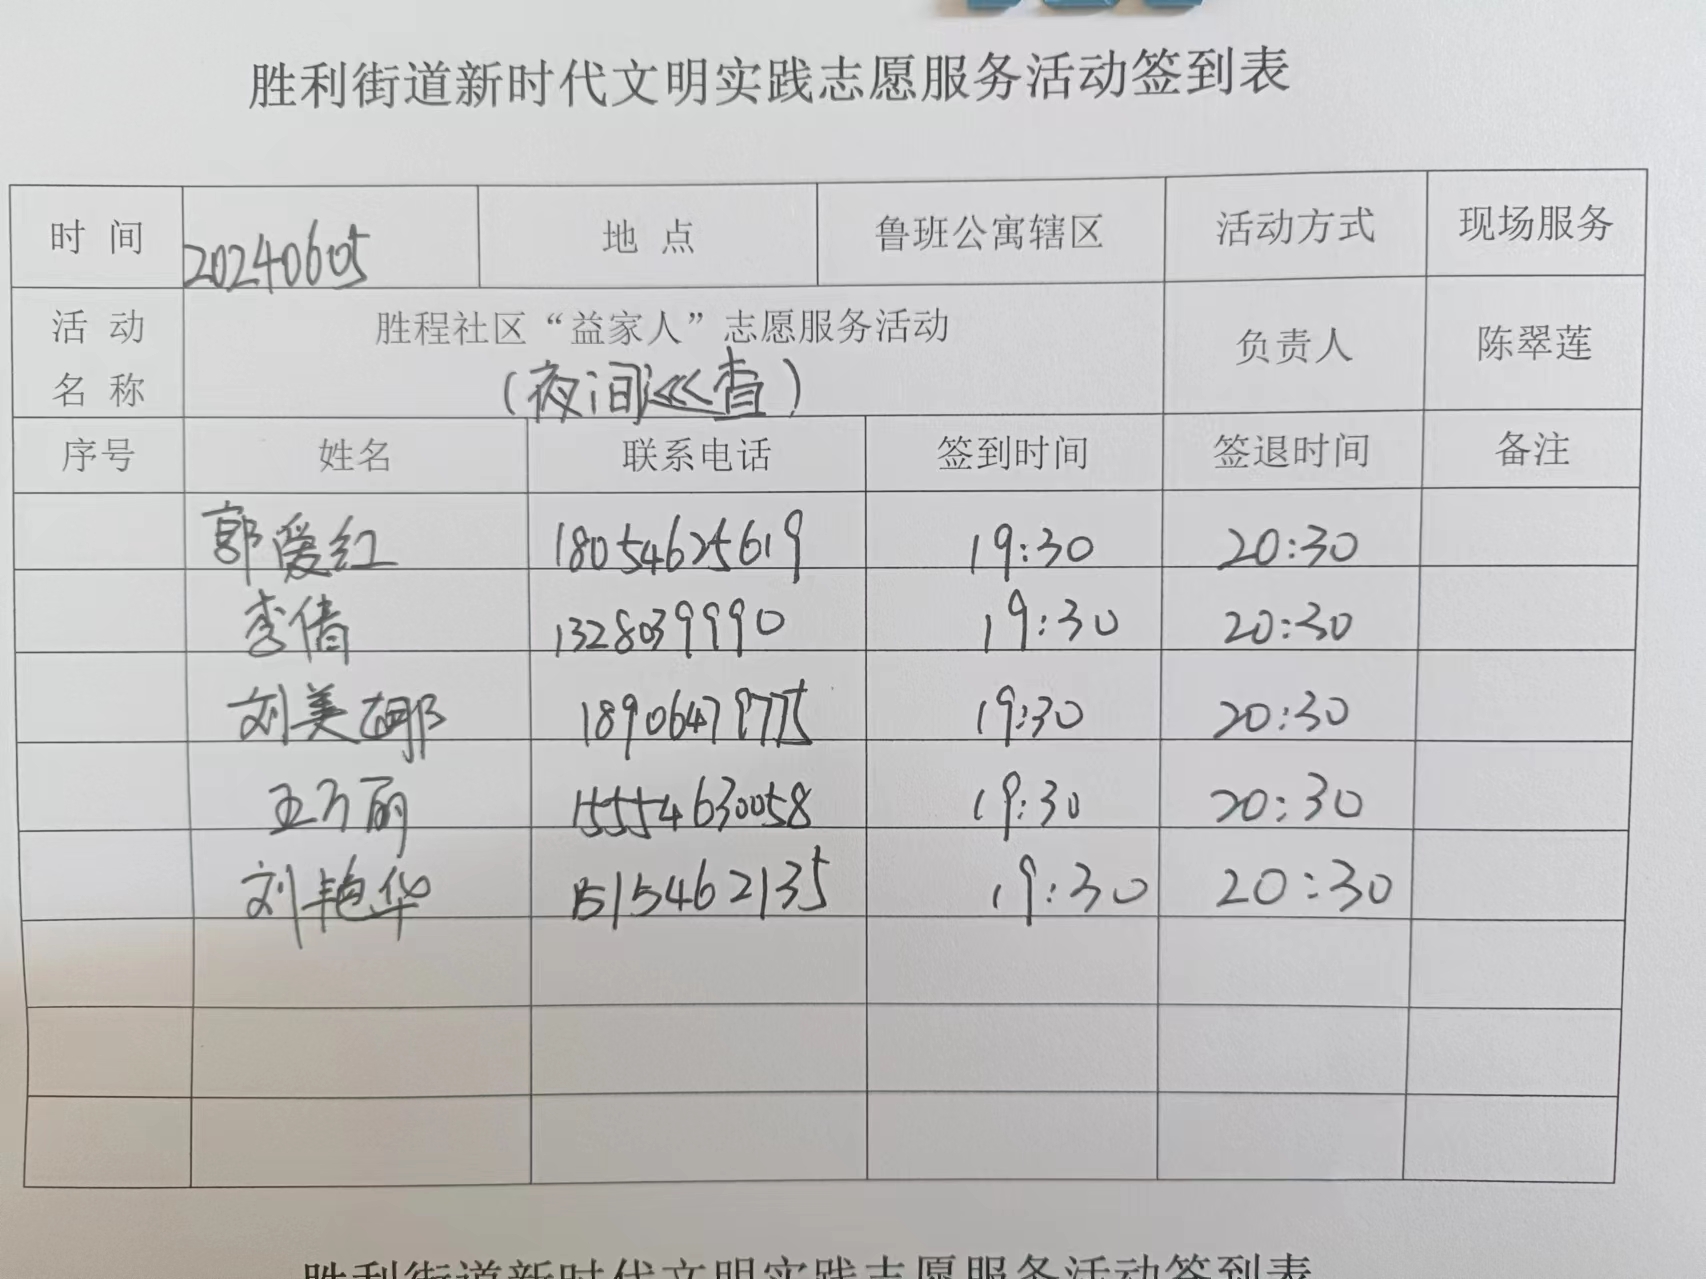 胜利街道新时代文明实践志愿服务活动签到表
时 间 20240605 地 点 鲁班公寓辖区 活动方式 现场服务
活 动 名 称 胜程社区“益家人”志愿服务活动 负责人 陈翠莲
(夜间巡查)
序号 姓名 联系电话 签到时间 签退时间 备注
郭爱红 18054625619 19:30 20:30
李倩 1328039990 19:30 20:30
刘美娜 19:30 20:30
王万丽 15554630058 19:30 20:30
刘艳华 1515462135 19:30 20:30
胜利街道新时代文明实践志愿服务活动签到表